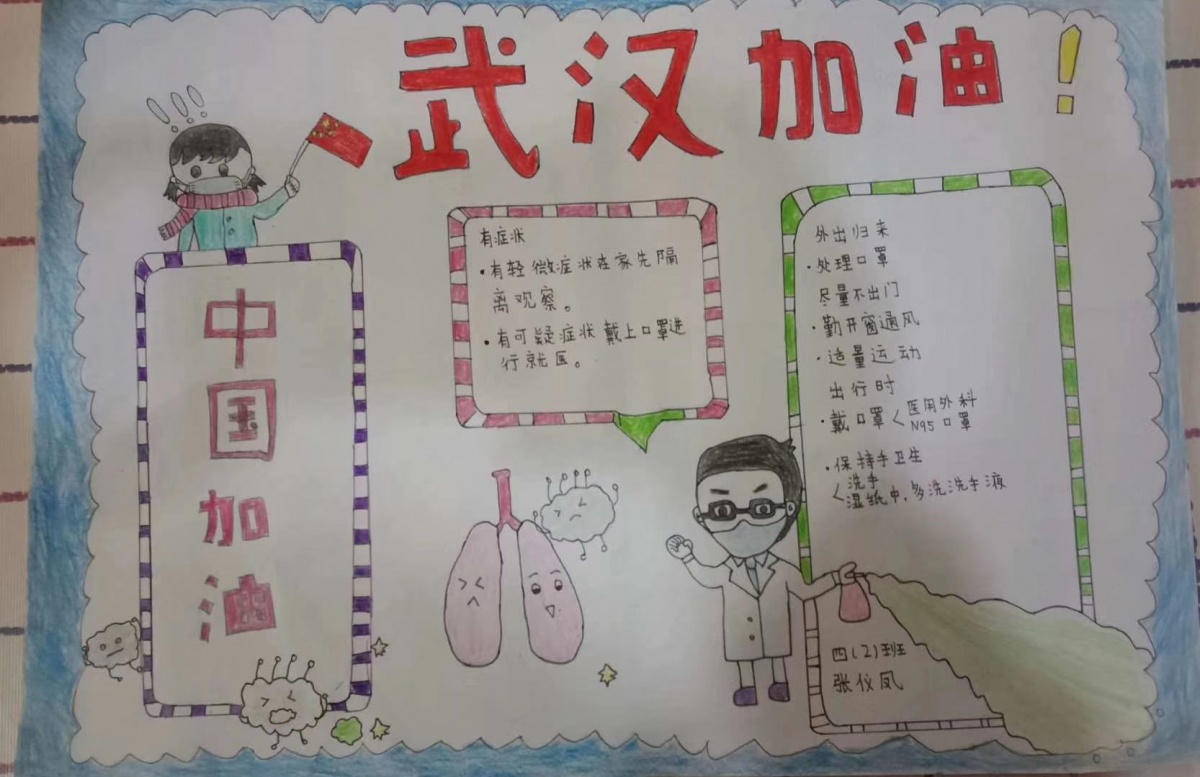 武汉加油!
!!!
中国加油
有症状
·有轻微症状在家先隔
离观察。
·有可疑症状戴上口罩进
行就医。
外出归来
·处理口罩
尽量不出门
·勤开窗通风
·适量运动
出行时
·戴口罩<医用外科
N95口罩
·保持手卫生
<洗手
湿纸巾,多洗洗手液
四(2)班
张仪凤